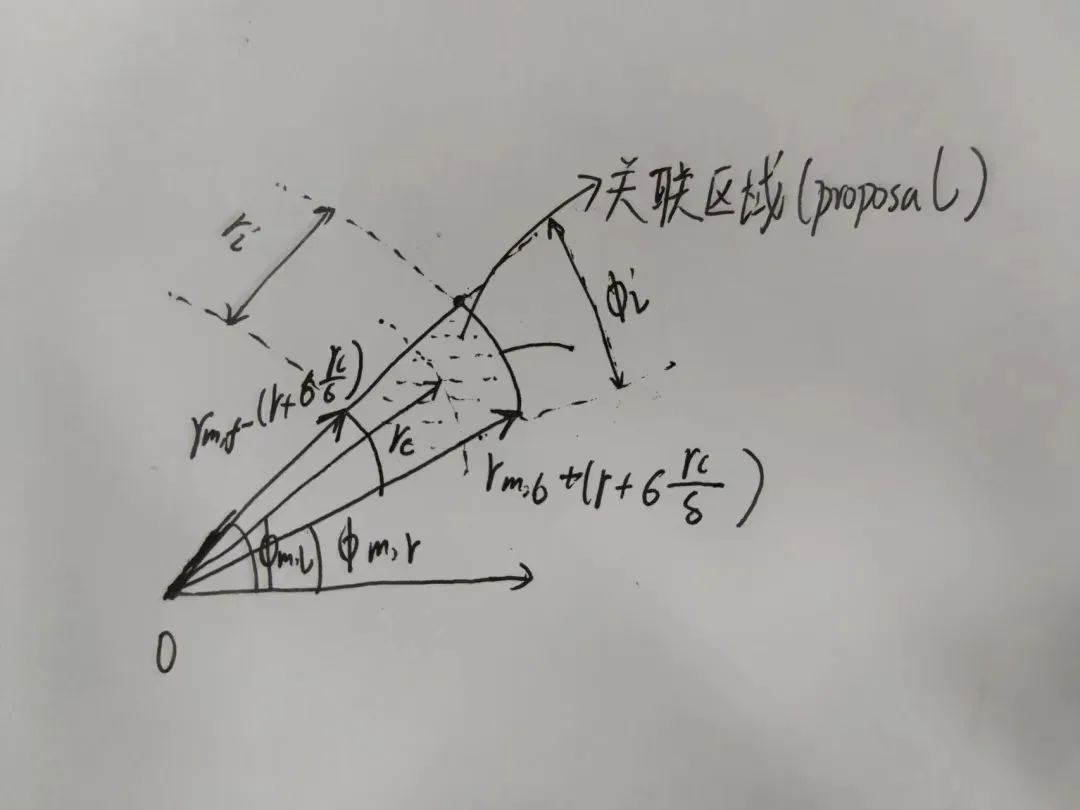 关联区域(proposal)
ri
ϕi
rm,f-(r+6 rc/6)
rc
rm,6+(r+6 rc/δ)
ϕm,l
ϕm,r
0